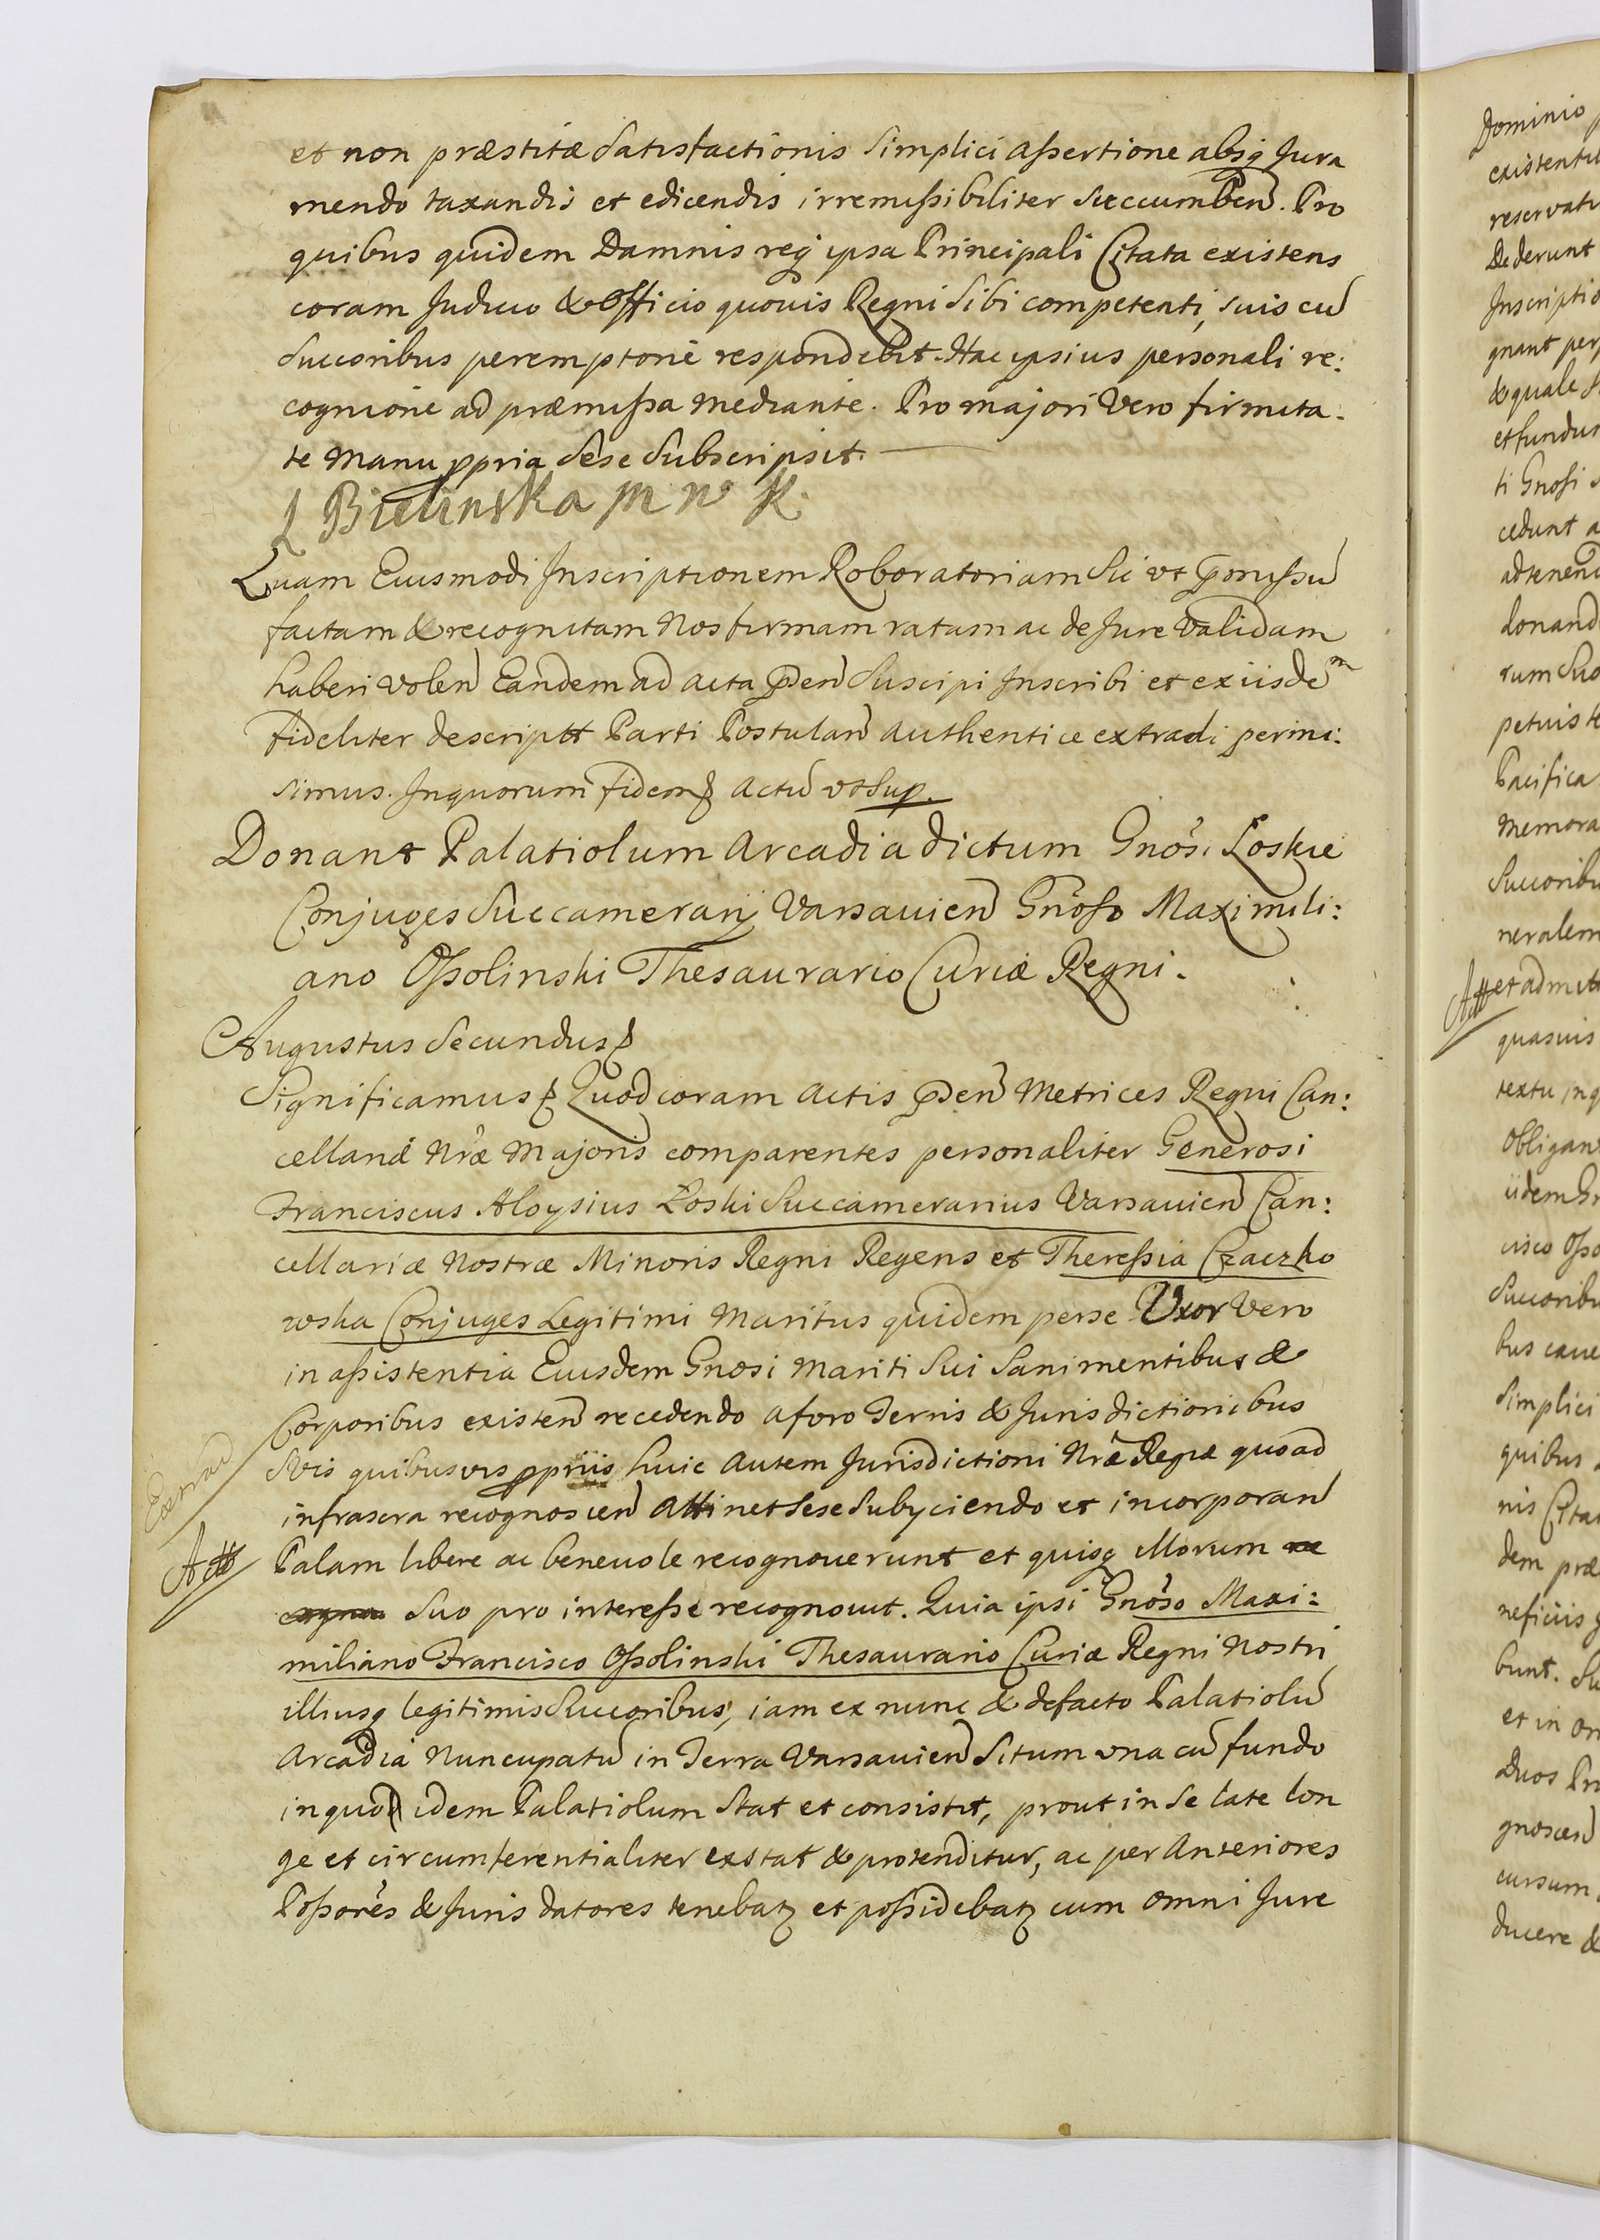 et non præstitæ Satisfactionis Simplici assertione absq Jura
mendo taxandis et edicendis irremissibiliter Succumben. Pro
quibus quidem Damnis req ipsa Principali Citata existens
coram Judicio & Officio quovis Regni Sibi competenti, suis cu
Succoribus peremptorie respondebit. Hac ipsius personali re:
cognitione ad præmissa mediante. Pro majori Vero firmita-
te Manu ppria Sese Subscripsit.
L Bielinska m p
Quam Eiusmodi Inscriptionem Roboratoriam Sic vt pmissu
factam & recognitam Nos firmam ratam ac de Jure Validam
haberi volen Eandem ad acta pden Suscipi Inscribi et ex iisdem
fideliter descriptt Parti Postulan authentice extradi permi:
simus. In quorum fidem actu vt Sup.
Donant Palatiolum Arcadia dictum Gnosi Łoskie
Conjuges Succamerarij Varsavien Gnoso Maximili:
ano Ossolinski Thesaurario Curiæ Regni.
Augustus Secundus
Significamus Quod coram Actis pden Metrices Regni Can:
cellariæ Nræ Majoris comparentes personaliter Generosi
Franciscus Aloysius Łoski Succamerarius Varsavien Can:
cellariæ Nostræ Minoris Regni Regens et Theressia Czaczko
wska Conjuges Legitimi Maritus quidem per se Uxor Vero
in assistentia Eiusdem Gnosi Mariti Sui Sani mentibus &
Corporibus existen recedendo a foro Terris & Jurisdictionibus
Suis quibusvis ppriis huic autem Jurisdictioni Nræ Regiæ quoad
infrascra recognoscen attinet Sese Subyciendo et incorporan
Extrad
Palam libere ac benevole recognoverunt et quisq illorum re
Att
cogno Suo pro interesse recognovit. Quia ipsi Gnoso Maxi:
miliano Francisco Ossolinski Thesaurario Curiæ Regni Nostri
illiusq legitimis Succoribus, iam ex nunc & de facto Palatiolu
Arcadia Nuncupatu in Terra Varsavien Situm vna cu fundo
in quo idem Palatiolum Stat et consistit, prout in Se late lon
ge et circumferentialiter exstat & protenditur, ac per Anteriores
Possores & Juris datores tenebatz et possidebatz cum omni Jure
Dominio
reservat
Dederunt
Inscriptio
& quale
et fundus
ti Gnosi
cedunt
donand
rum Suo
Pacifica
Memora
Succoribu
neralem
Att et admit
quasvis
textu, in q
iidem Gn
cisco Osso
Succoribu
bus
Simplici
quibus
nis Citat
dem præ
neficiis
bunt. Su
et in om
Duos Pr
gnoscen
cursum
ducere &